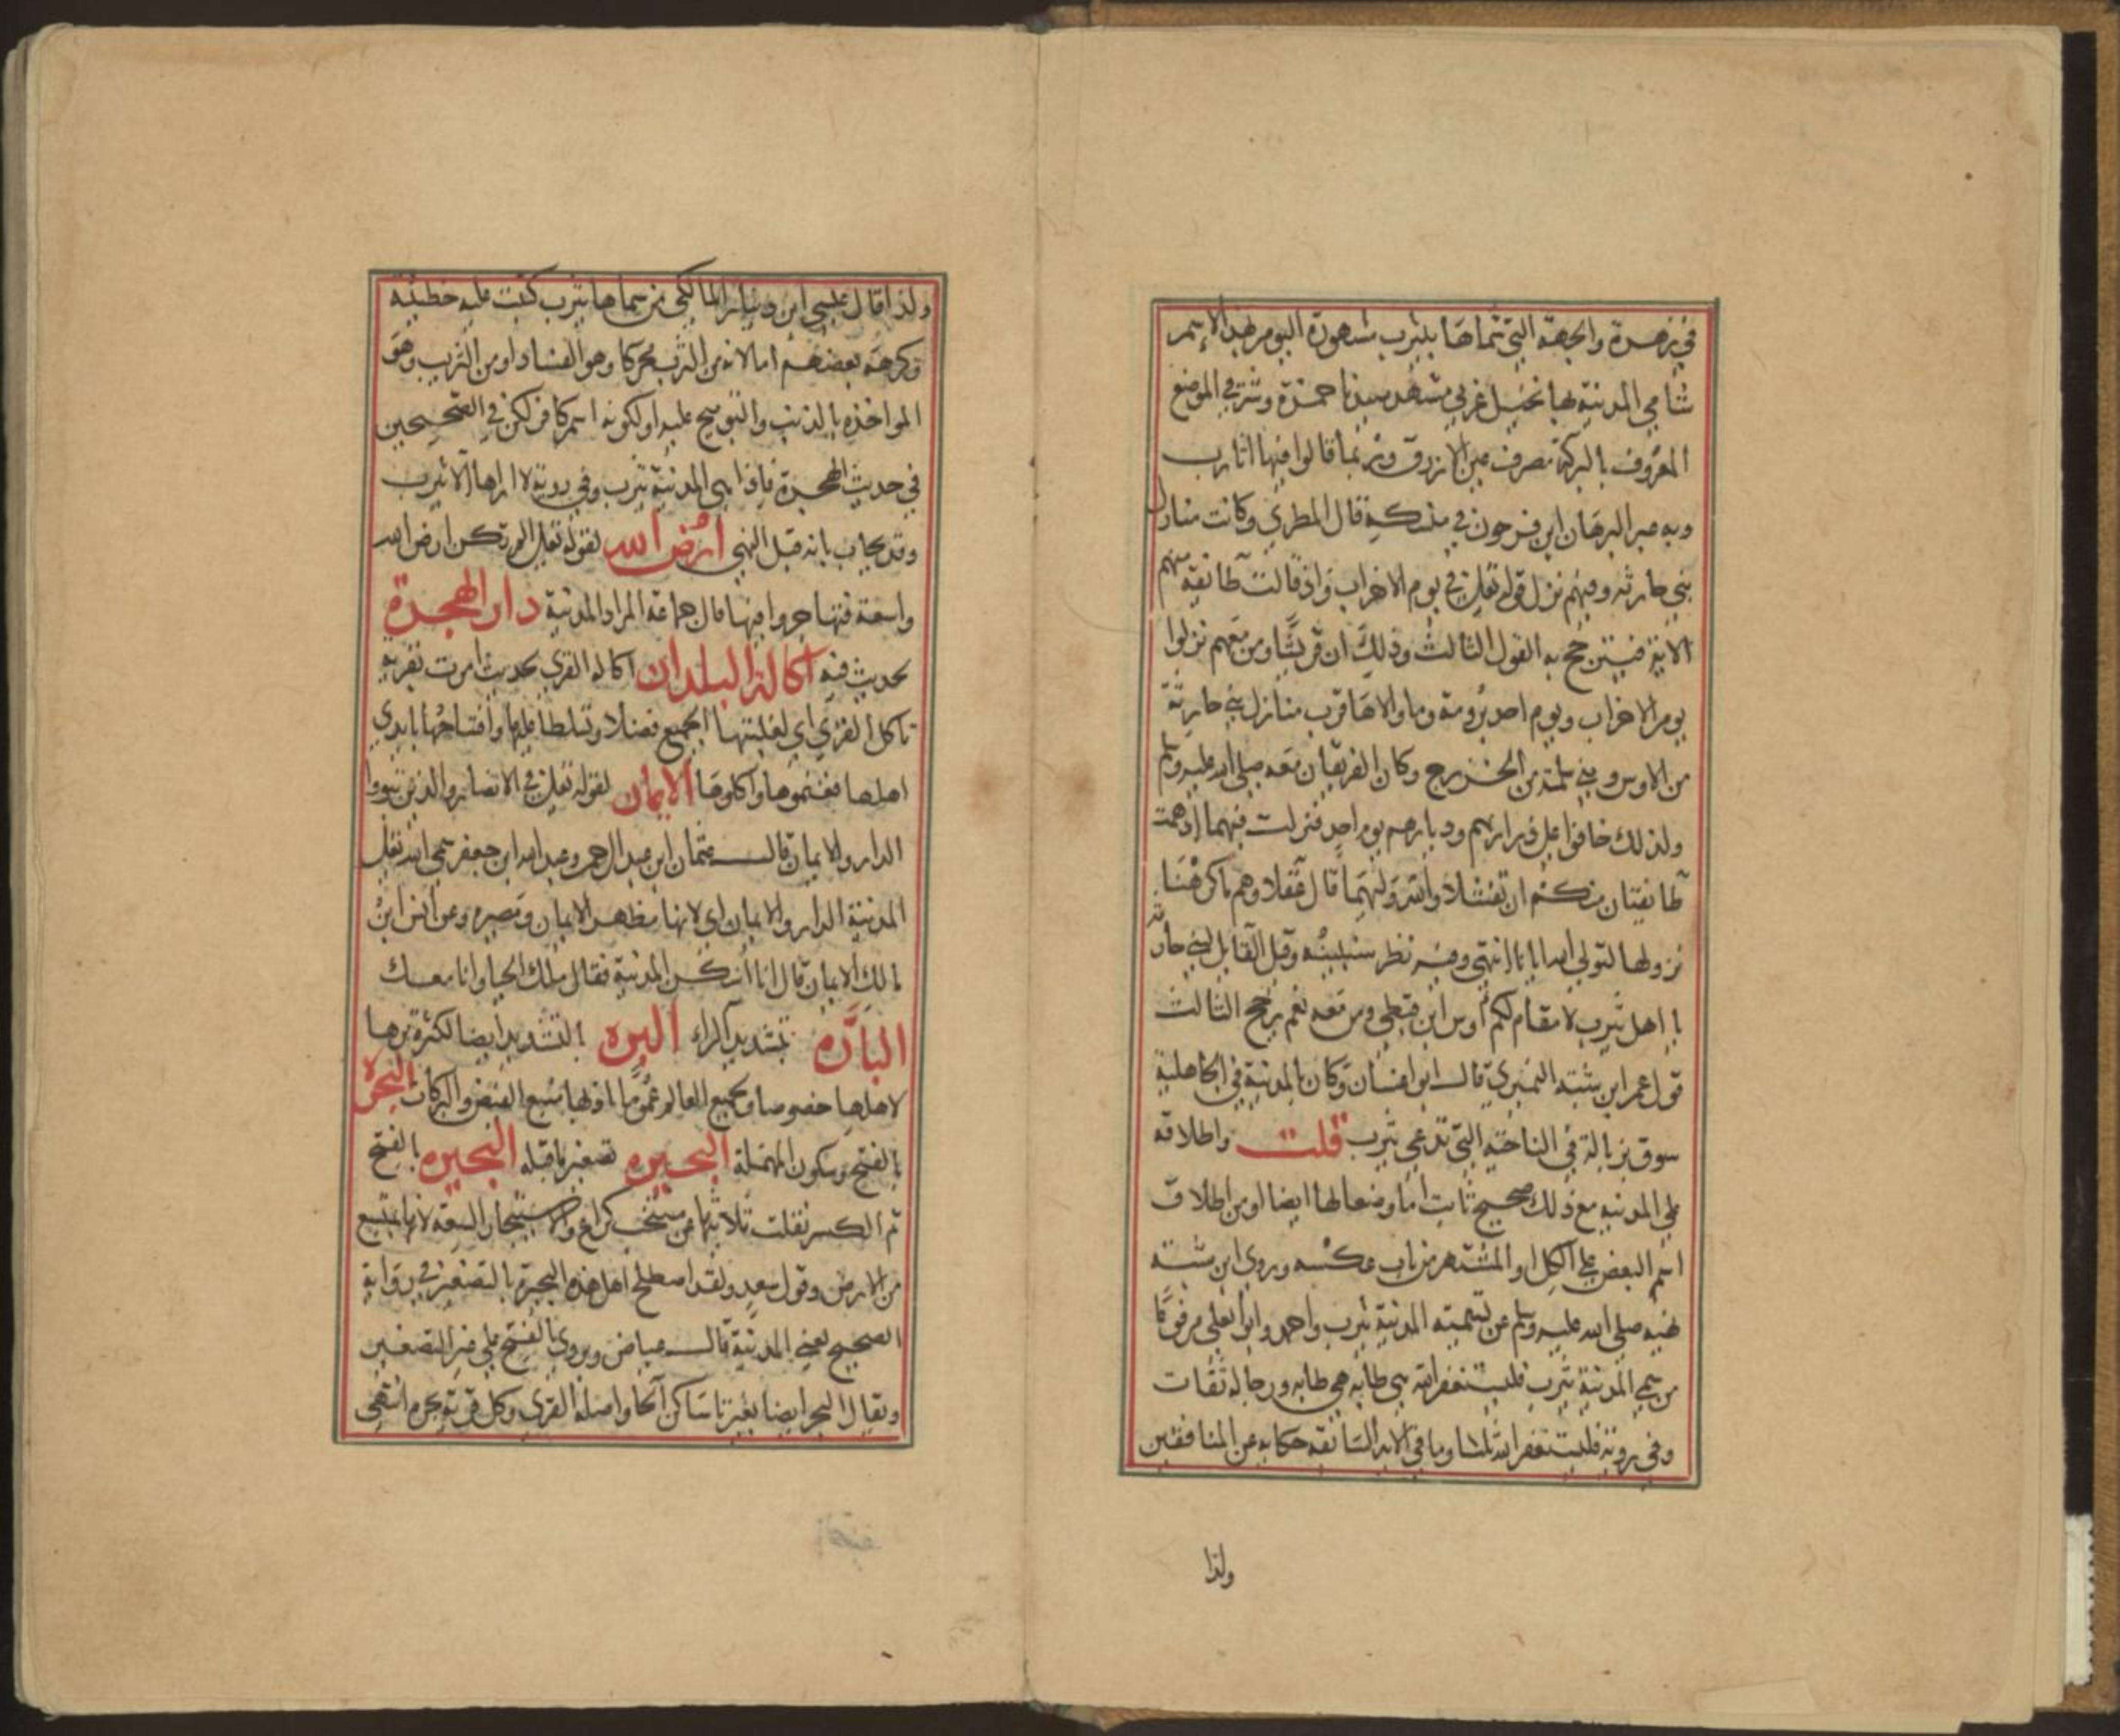 في زهرة والجهة التي سماها بيثرب مشهورة اليوم بهذا الاسم
شامي المدينة بها نخيل غربي مشهد سيدنا حمزة وشرقي الموضع
المعروف بالبركة مصرف عين الازرق وربما قالوا فيها اثارب
وبه عبر البرهان ابن فرحون في منسكه قال المطري وكانت منازل
بني حارثه وفيهم نزل قوله تعالى في يوم الاحزاب واذ قالت طائفة منهم
الاية فيترجح به القول الثالث وذلك ان قريشا ومن معهم نزلوا
يوم الاحزاب ويوم احد برومة وما والاها قرب منازل بني حارثة
من الاوس وبني سلمة من الخزرج وكان الفريقان معه صلى الله عليه وسلم
ولذلك خافوا على ذراريهم وديارهم يوم احد فنزلت فيهما اذ همت
طائفتان منكم ان تفشلا والله وليهما قال عقلاوهم ما كرهنا
نزولها لتولي الله ايانا انتهى وفيه نظر سنبينه وقيل القايل لبني حارثه
يا اهل يثرب لا مقام لكم اوس ابن قيظي ومن معه نعم يرجح الثالث
قول عمر ابن شبه النميري قال ابو غسان وكان بالمدينة في الجاهلية
سوق بزبالة في الناحية التي تدعى يثرب قلت واطلاقه
على المدينة مع ذلك صحيح ثابت اما وضعا لها ايضا او من اطلاق
اسم البعض على الكل او المشتهر من باب عكسه وروى ابن شبه
نهيه صلى الله عليه وسلم عن تسمية المدينة يثرب واحمد وابو يعلى مرفوعا
من سمى المدينة يثرب فليستغفر الله هي طابه هي طابه ورجاله ثقات
وفي رواية فليستغفر الله ثلاثا وما في الاية السابقة حكاية عن المنافقين
ولذا
ولذا قال عيسى ابن دينار المالكي من سماها يثرب كتبت عليه خطيئه
وكرهه بعضهم اما لانه من الثرب محركا وهو الفساد او من التثريب وهو
المواخذه بالذنب والتوبيخ عليه او لكونه اسم كافر لكن في الصحيحين
في حديث الهجرة فاذا هي المدينة يثرب وفي رواية لا اراها الا يثرب
وقد يجاب بانه قبل النهي ارض الله لقوله تعالى الم تكن ارض الله
واسعة فتهاجروا فيها قال جماعة المراد المدينة دار الهجرة
لحديث فيه اكالة البلدان اكالة القرى لحديث امرت بقرية
تاكل القرى اي لغلبتها الجميع فضلا وتسلطا عليها وافتتاحها بايدي
اهلها فغنموها واكلوها الايمان لقوله تعالى في الانصار والذين تبووا
الدار والايمان قال عثمان ابن عبد الرحمن وعبد الله ابن جعفر سمى الله تعالى
المدينة الدار والايمان اي لانها مظهر الايمان ومصيره وعن انس ابن
مالك الايمان قال انا اسكن المدينة فقال ملك الحيا وانا معك
البارّه بتشديد الراء البره بالتشديد ايضا لكثرة برها
لاهلها خصوصا ولجميع العالم عموما اذ بها منبع الفيض والبركات البحرة
بالفتح وسكون المهملة البحيره تصغير ما قبله البحيره بالفتح
ثم الكسر نقلت ثلاثتها من منتخب كراع والاستبحار السعة لانها بمتسع
من الارض وقول سعد ولقد اصطلح اهل هذه البحيرة بالتصغير في رواية
الصحيح يعني المدينة قال عياض ويروى بالفتح على غير التصغير
ويقال البحر ايضا بغير تا ساكن الحا واصله القرى وكل قرية بحرة انتهى